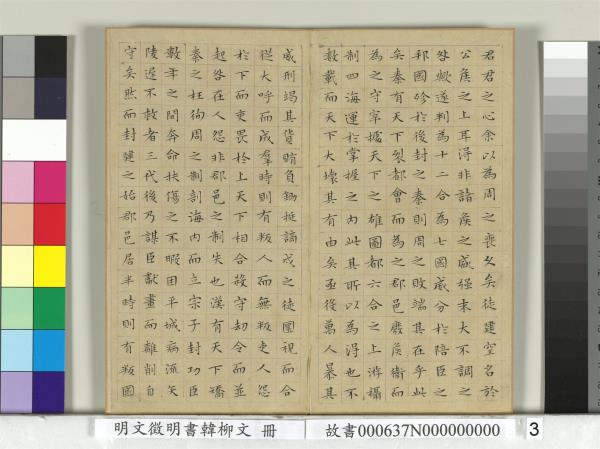 君君之心余以為周之喪久矣徒建空名於
公侯之上耳得非諸侯之盛強末大不調之
咎歟遂判為十二合為七國威分於陪臣之
邦國殄於後封之秦則周之敗端其在乎此
矣秦有天下裂都會而為之郡邑廢侯衛而
為之守宰據天下之雄圖都六合之上游攝
制四海運於掌握之內此其所以為得也不
數載而天下大壞其有由矣亟役萬人暴其
威刑竭其貨賄負鋤梃謫戍之徒圜視而合
從大呼而成羣時則有叛人而無叛吏人怨
於下而吏畏於上天下相合殺守劫令而並
起咎在人怨非郡邑之制失也漢有天下矯
秦之枉徇周之制剖海內而立宗子封功臣
數年之間奔命扶傷之不暇困平城病流矢
陵遲不救者三代後乃謀臣獻畫而離削自
守矣然而封建之始郡邑居半時則有叛國
明文徵明書韓柳文 冊
故書000637N000000000
3